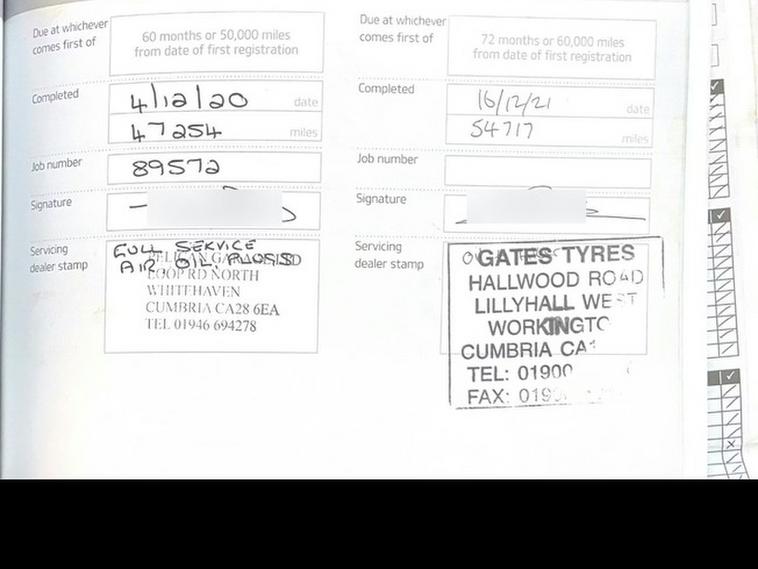 Due at whichever
comes first of
60 months or 50,000 miles
from date of first registration
Completed
4/12/20 date
47254 miles
Job number
89572
Signature
Servicing
dealer stamp
FULL SERVICE
AIR OIL
PELICAN
LOOP RD NORTH
WHITEHAVEN
CUMBRIA CA28 6EA
TEL 01946 694278
Due at whichever
comes first of
72 months or 60,000 miles
from date of first registration
Completed
16/12/21 date
54717 miles
Job number
Signature
Servicing
dealer stamp
GATES TYRES
HALLWOOD ROAD
LILLYHALL WEST
WORKINGTO
CUMBRIA CA
TEL: 01900
FAX: 019